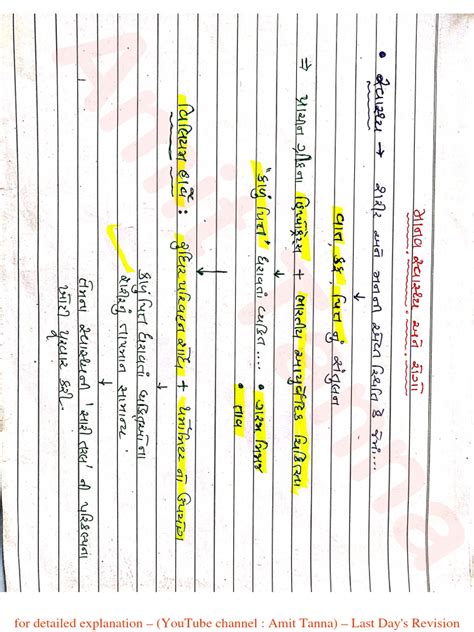 માનવ સ્વાસ્થ્ય અને રોગો
• સ્વાસ્થ્ય → શરીર અને મનની સમતોલ સ્થિતિ કે જેમાં...
વાત, કફ, પિત્તનું સંતુલન
⇒ પ્રાચીન ગ્રીકના હિપોક્રેટ્સ + ભારતીય આયુર્વેદિક ચિકિત્સા
"કાળું પિત્ત" ધરાવતાં વ્યક્તિ.... • ગરમ મિજાજ
• તાવ
વિલિયમ હાર્વે : રુધિર પરિવહન શોધ + થર્મોમિટરનો ઉપયોગ
કાળું પિત્ત ધરાવતી વ્યક્તિઓના
શરીરનું તાપમાન સામાન્ય
તેમના સ્વાસ્થ્યની 'સારી તરલ' ની પરિકલ્પના
ખોટી પુરવાર કરી.
Amit Tanna
for detailed explanation – (YouTube channel : Amit Tanna) – Last Day's Revision